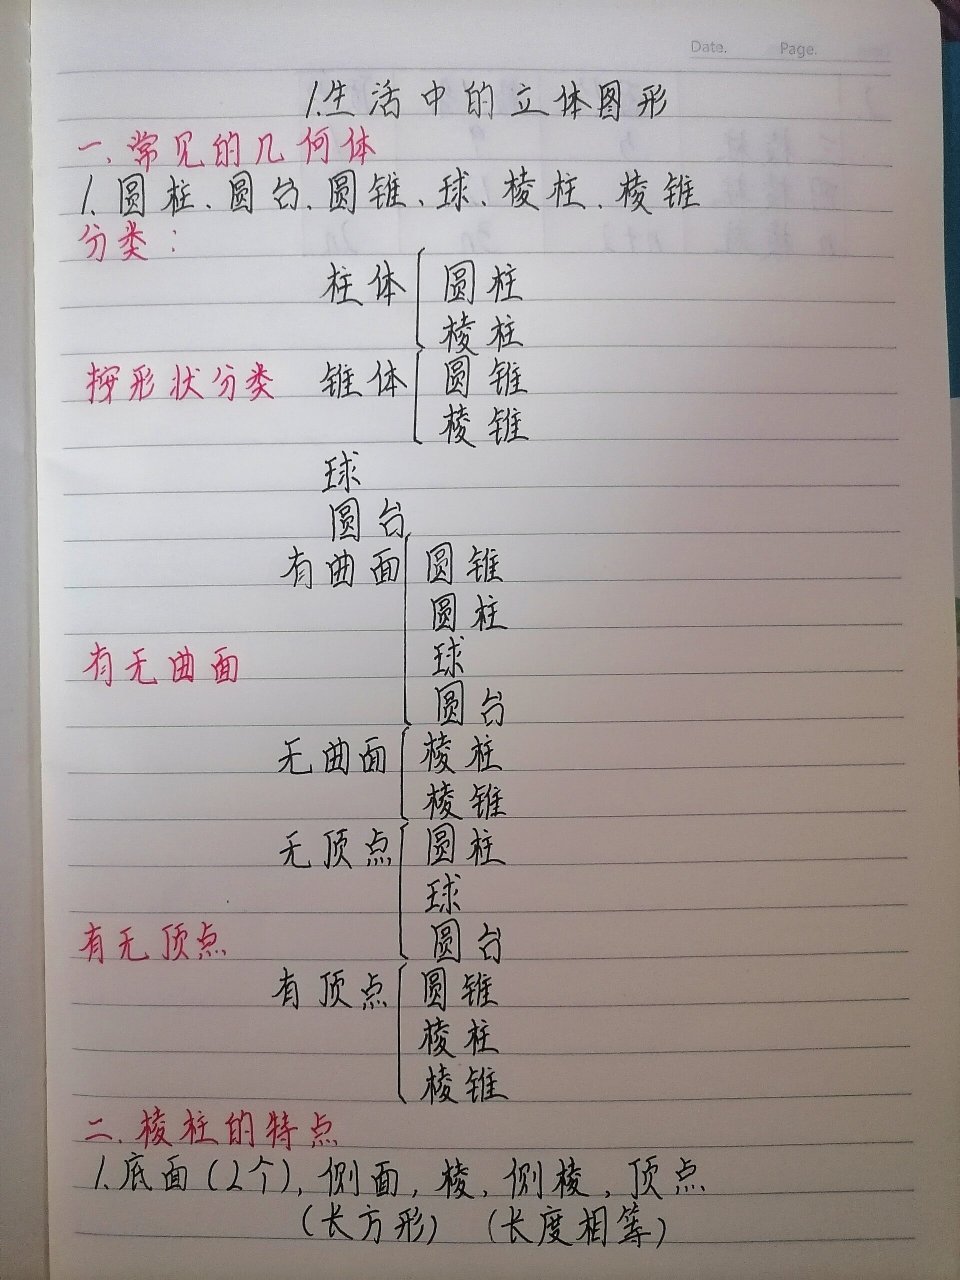 Date. Page.
1.生活中的立体图形
一.常见的几何体
1.圆柱、圆台、圆锥、球、棱柱、棱锥
分类：
柱体 圆柱
棱柱
按形状分类 锥体 圆锥
棱锥
球
圆台
有曲面 圆锥
圆柱
有无曲面 球
圆台
无曲面 棱柱
棱锥
无顶点 圆柱
球
有无顶点 圆台
有顶点 圆锥
棱柱
棱锥
二.棱柱的特点
1.底面(2个),侧面,棱,侧棱,顶点
(长方形) (长度相等)